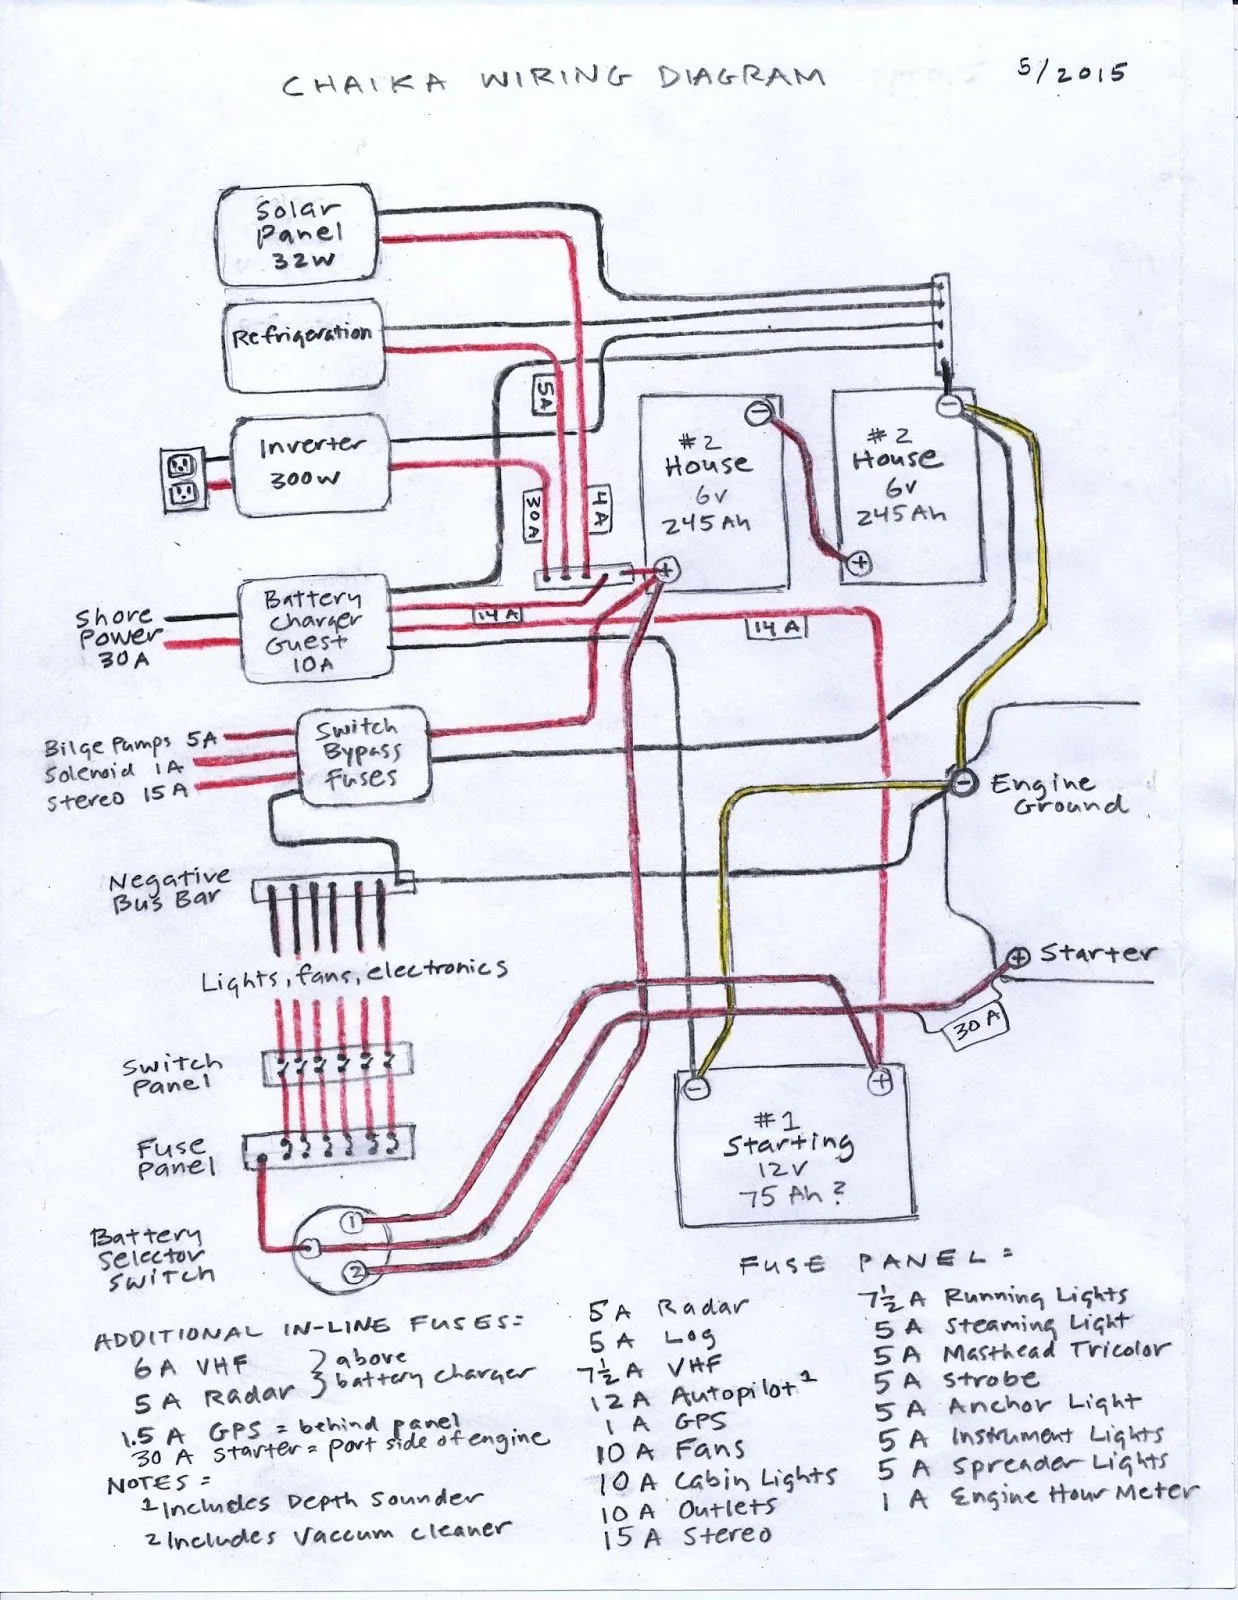 CHAIKA WIRING DIAGRAM
5/2015
Solar
Panel
32W
Refrigeration
5A
Inverter
300W
30A
4A
#2
House
6v
245Ah
−
+
#2
House
6v
245Ah
−
+
Shore
Power
30A
Battery
Charger
Guest
10A
14A
14A
Bilge Pumps 5A
Solenoid 1A
Stereo 15A
Switch
Bypass
Fuses
−
Engine
Ground
Negative
Bus Bar
Lights, fans, electronics
+ Starter
30A
Switch
Panel
Fuse
Panel
−
+
#1
Starting
12v
75 Ah?
Battery
Selector
Switch
1
2
ADDITIONAL IN-LINE FUSES:
6A VHF } above
5A Radar } battery charger
1.5 A GPS = behind panel
30 A Starter = port side of engine
NOTES:
1 Includes Depth Sounder
2 Includes Vaccum cleaner
FUSE PANEL:
5A Radar
5A Log
7½A VHF
12A Autopilot1
1 A GPS
10A Fans
10A Cabin Lights
10A Outlets
15A Stereo
7½A Running Lights
5A Steaming Light
5A Masthead Tricolor
5A Strobe
5A Anchor Light
5 A Instrument Lights
5 A Spreader Lights
1 A Engine Hour Meter